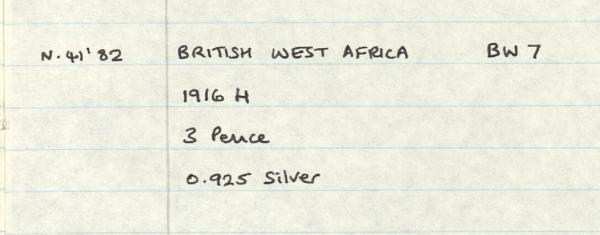 N.41'82 BRITISH WEST AFRICA BW 7
1916 H
3 Pence
0.925 Silver